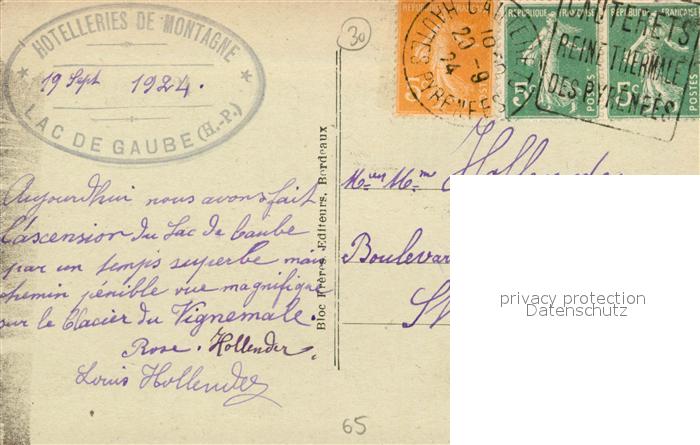 HOTELLERIES DE MONTAGNE
19 Sept 1924.
LAC DE GAUBE (H-P.)
Aujourdhui nous avons fait
l'ascension du Lac de Gaube
par un temps superbe mais
chemin pénible vue magnifique
sur le Glacier du Vignemale.
Rose. Hollender.
Louis Hollender
Bloc Frères Editeurs, Bordeaux
30
65
HAUTES PYRENEES
20 -9
24
CAUTERETS
REINE THERMALE
DES PYRENEES
5c
5c
POSTES
Hollender
Boulevar
privacy protection
Datenschutz